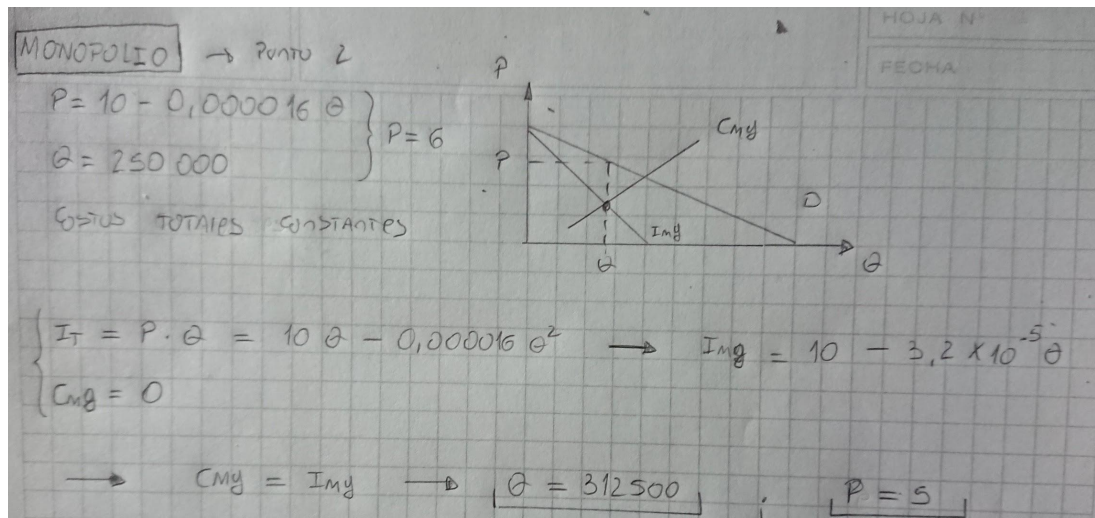 HOJA Nº
FECHA
MONOPOLIO → PUNTO 2
P = 10 - 0,000016 Q
Q = 250 000
P = 6
COSTOS TOTALES CONSTANTES
P
CMg
P
D
IMg
Q
Q
IT = P . Q = 10 Q - 0,000016 Q² → IMg = 10 - 3,2 x 10⁻⁵ Q
CMg = 0
→ CMg = IMg → Q = 312500 ; P = 5